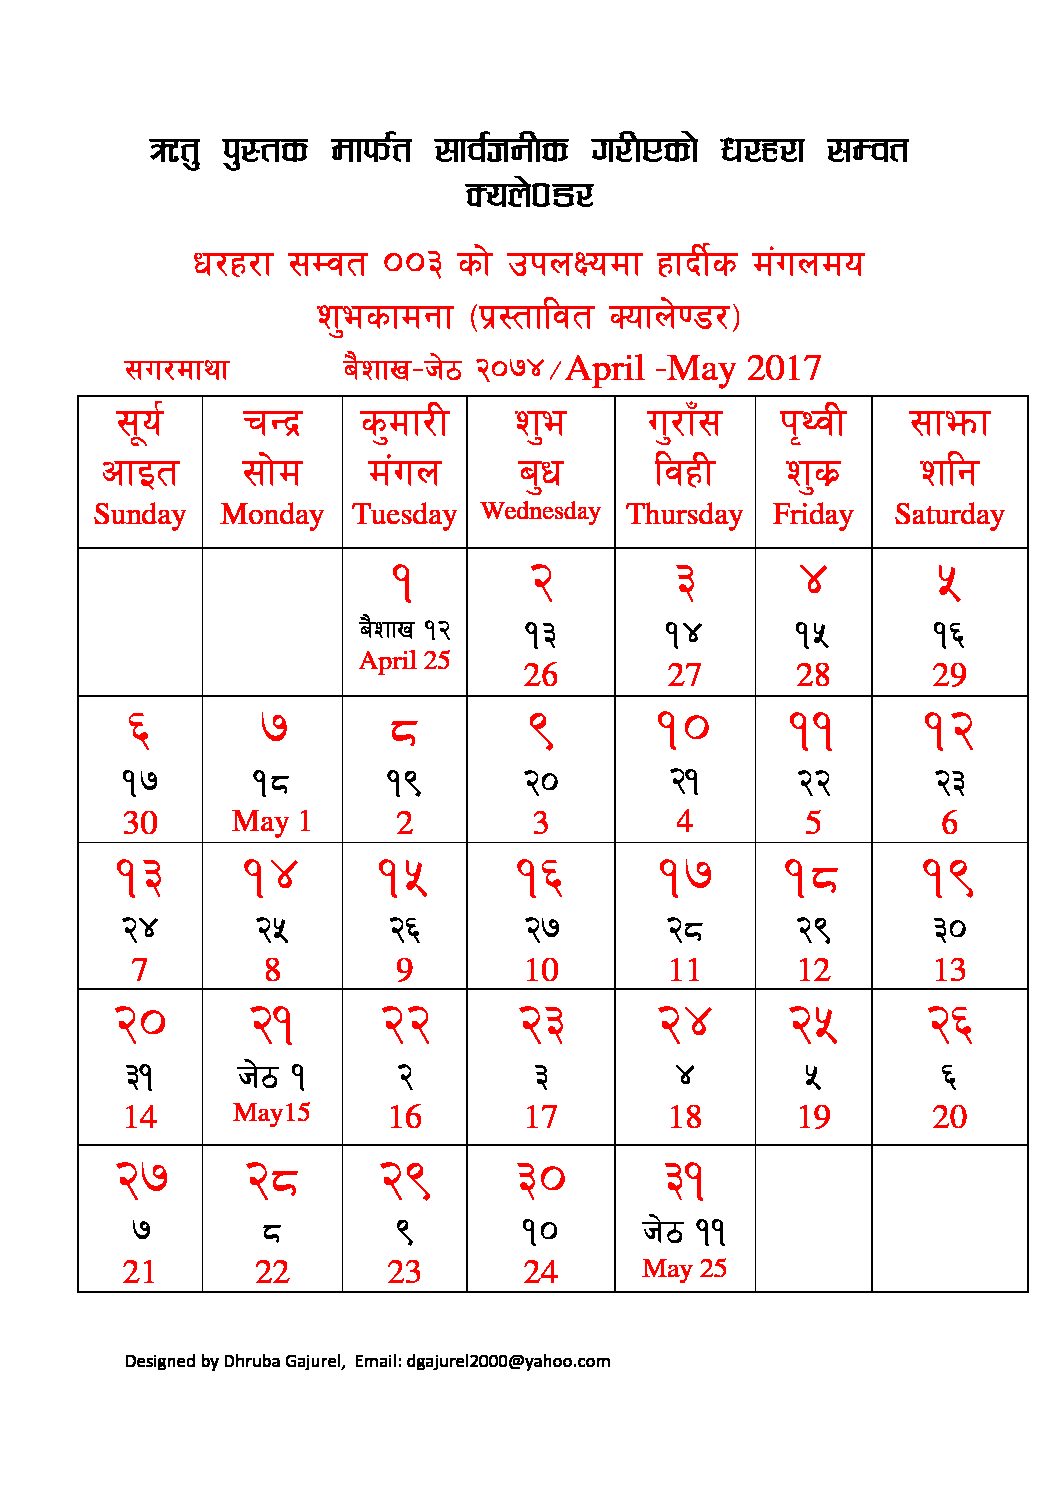 ऋतु पुस्तक मार्फत सार्वजनीक गरीएको धरहरा सम्वत
क्यलेण्डर
धरहरा सम्वत ००३ को उपलक्ष्यमा हार्दीक मंगलमय
शुभकामना (प्रस्तावित क्यालेण्डर)
सगरमाथा बैशाख-जेठ २०७४/April -May 2017
सूर्य चन्द्र कुमारी शुभ गुराँस पृथ्वी साझा
आइत सोम मंगल बुध विही शुक्र शनि
Sunday Monday Tuesday Wednesday Thursday Friday Saturday
१ २ ३ ४ ५
बैशाख १२ १३ १४ १५ १६
April 25 26 27 28 29
६ ७ ८ ९ १० ११ १२
१७ १८ १९ २० २१ २२ २३
30 May 1 2 3 4 5 6
१३ १४ १५ १६ १७ १८ १९
२४ २५ २६ २७ २८ २९ ३०
7 8 9 10 11 12 13
२० २१ २२ २३ २४ २५ २६
३१ जेठ १ २ ३ ४ ५ ६
14 May15 16 17 18 19 20
२७ २८ २९ ३० ३१
७ ८ ९ १० जेठ ११
21 22 23 24 May 25
Designed by Dhruba Gajurel, Email: dgajurel2000@yahoo.com